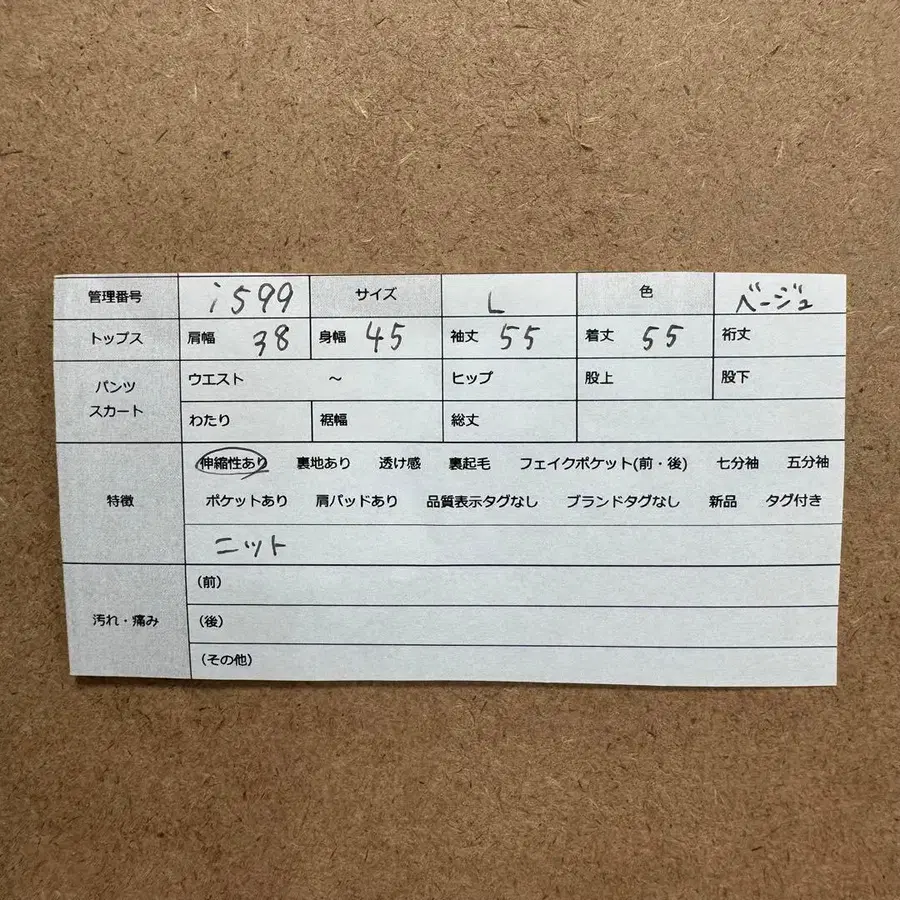 管理番号 i599 サイズ L 色 ベージュ
トップス 肩幅 38 身幅 45 袖丈 55 着丈 55 裄丈
パンツ スカート ウエスト ～ ヒップ 股上 股下
わたり 裾幅 総丈
特徴 伸縮性あり 裏地あり 透け感 裏起毛 フェイクポケット(前・後) 七分袖 五分袖
ポケットあり 肩パッドあり 品質表示タグなし ブランドタグなし 新品 タグ付き
ニット
汚れ・痛み (前)
(後)
(その他)